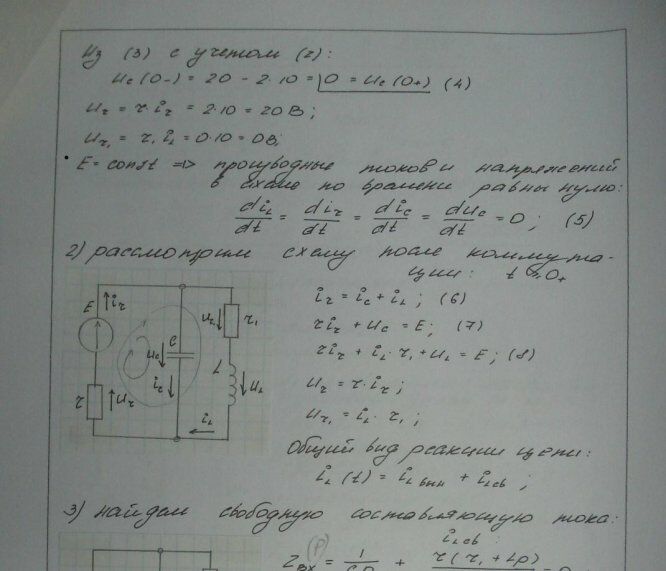 Из (3) с учетом (2):
uc(0-) = 20 - 2·10 = 0 = uc(0+) (4)
ur = r·ir = 2·10 = 20 В;
ur1 = r1 iL = 0·10 = 0 В;
E = const => производные токов и напряжений
в схеме по времени равны нулю:
diL/dt = dir/dt = dic/dt = duc/dt = 0; (5)
2) рассмотрим схему после коммута-
ции: t = 0+
ir = ic + iL; (6)
r ir + uc = E; (7)
r ir + iL·r1 + uL = E; (8)
ur = r·ir;
ur1 = iL·r1;
E ir C uc ic ur r1 L uL r ur iL
Общий вид реакции цепи:
iL(t) = iL вын + iL св;
3) найдем свободную составляющую тока:
iL св:
Zвх(p) = 1/Cp + r(r1 + Lp)